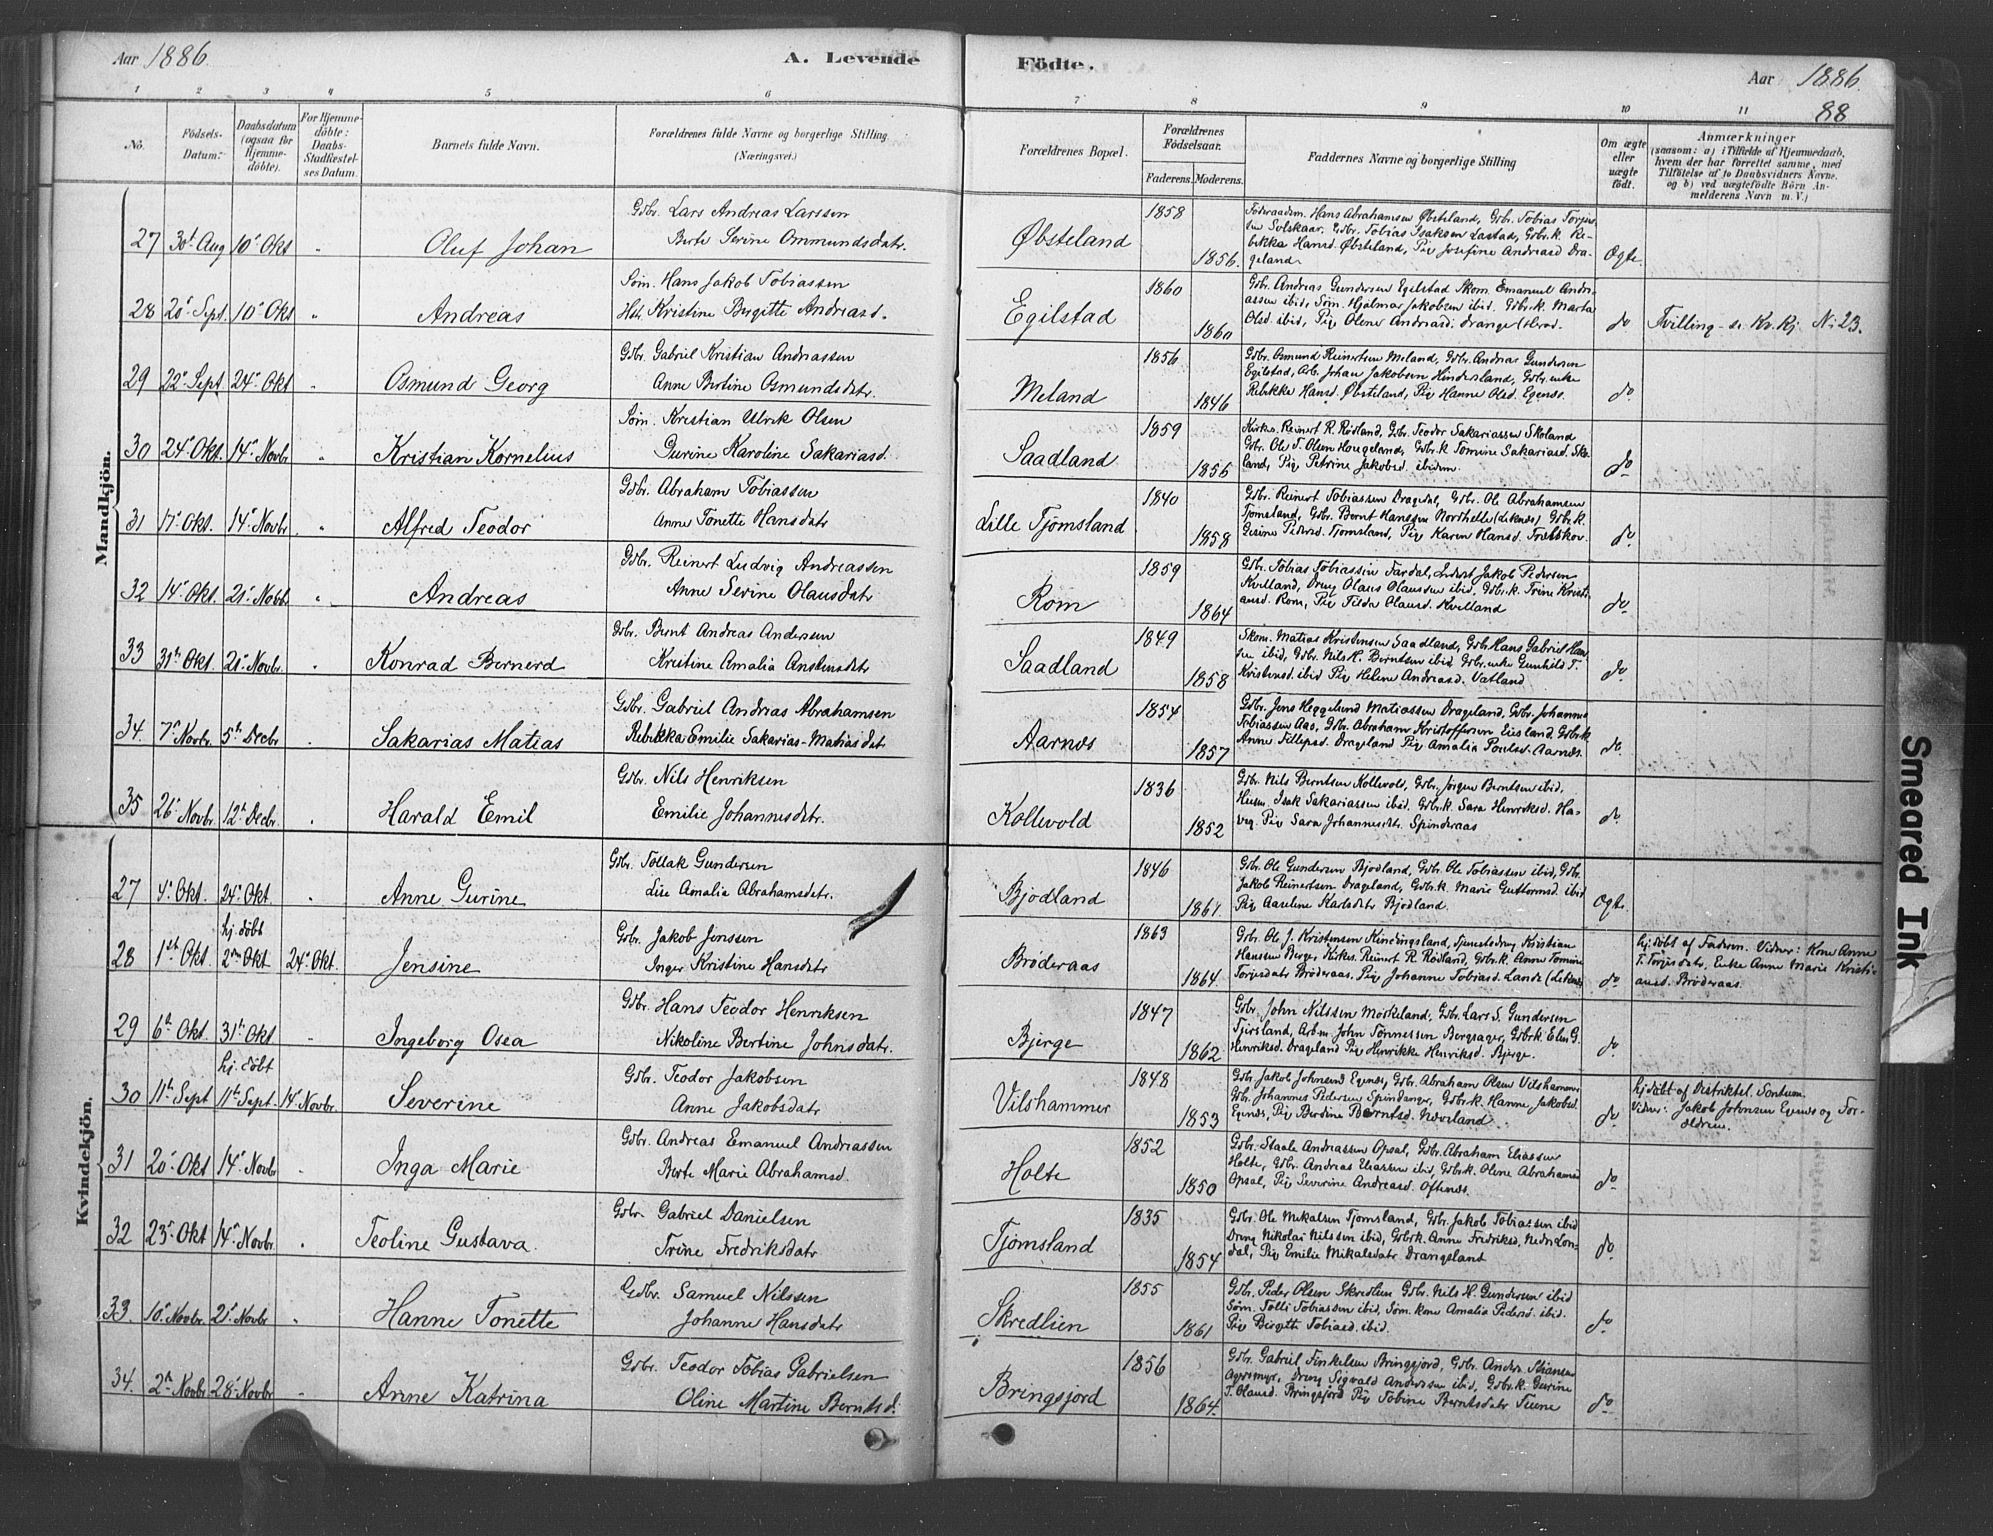 Aar 1886
A. Levende
Födte.
Aar 1886
88
1 2 3 4 5 6 7 8 9 10 11
No.
Födsels-
Datum:
Daabsdatum
(ogsaa for
Hjemme-
döbte).
For Hjemme-
döbte:
Daabs-
Stadfæstel-
ses Datum.
Barnets fulde Navn.
Forældrenes fulde Navne og borgerlige Stilling
(Næringsvei.)
Forældrenes Bopæl.
Forældrenes
Födselsaar.
Faderens. Moderens.
Faddernes Navne og borgerlige Stilling
Om ægte
eller
uægte
födt.
Anmærkninger
(saasom: a) i Tilfælde af Hjemmedaab,
hvem der har forrettet samme, med
Tilföielse af to Daabsvidners Navne.
og b) ved uægtefödte Börn An-
melderens Navn m. V.)
Mandkjön.
27 30te Aug 10de Okt " Oluf Johan
Gdbr. Lars Andreas Larssen
Berte Serine Ommundsdatr.
Øbsteland 1858 1856.
Föderaadsm. Hans Abrahamsen Øbsteland, Gdbr. Tobias Torjus-
sen Solskaar, Gdbr. Tobias Isaksen Lastad, Gdbr.k. Re-
bekka Hansd. Øbsteland, Pig. Josefine Andreasd Dra-
geland
Ægte.
28 20de Sept. 10de Okt " Andreas
Søm. Hans Jakob Tobiassen
Hstr. Kristine Birgitte Andreasd.
Egilstad 1860 1860
Gdbr. Andreas Gundersen Egilstad Skom. Emanuel Andre-
assen ibid, Søm. Hjalmar Jakobsen ibid. Gdbr.k. Marta
Olsd. ibid, Pig Olene Andreasd. Drange (Herad.
do Tvilling - se Kv.Kj. No 23.
29 22de Sept 24de Okt " Osmund Georg
Gdbr. Gabriel Kristian Andreassen
Anne Bertine Osmundsdatr.
Meland 1856 1846
Gdbr. Osmund Reinertsen Meland, Gdbr. Andreas Gundersen
Egilstad, Arb. Johan Jakobsen Hindersland, Gdbr. enke
Rebekke Hansd. Øbsteland, Pig Hanne Olsd. Egenes.
do
30 24de Okt. 14de Novbr " Kristian Kornelius
Søm. Kristian Ulrik Olsen
Gurine Karoline Sakariasd.
Saadland 1859 1856
Kirkes. Reinert R. Rødland, Gdbr. Teodor Sakariassen Skoland
Gdbr. Ole T. Olsen Haugeland, Gdbr.k Tomine Sakariasd. Sko-
land, Pig Petrine Jakobsd. ibidem.
do
31 17de Okt. 14de Novbr " Alfred Teodor
Gdbr. Abraham Tobiassen
Anne Tonette Hansdatr
Lille Tjømsland 1840 1858
Gdbr. Reinert Tobiassen Dragedal, Gdbr. Ole Abrahamsen
Tjømsland, Gdbr. Bernt Hanssen Nordhelle (Liknes) Gdbr.k.
Gesine Pedersd. Tjømsland, Pig Karen Hansd. Træthskov.
do
32 14de Okt. 21de Novbr. " Andreas
Gdbr. Reinert Ludvig Andreassen
Anne Serine Olausdatr
Rom 1859 1864
Gdbr. Tobias Tobiassen Fardal, Inderst Jakob Pedersen
Kvelland, Dreng Olaus Olaussen ibid, Gdbr.k. Trine Kristi-
ansd. Rom, Pig Tilda Olausd. Kvelland
do
33 31te Okt. 21de Novbr. " Konrad Bernerd
Gdbr. Bernt Andreas Andersen
Kristine Amalia Anstensdatr
Saadland 1849 1858
Skom. Matias Kristensen Saadland, Gdbr Hans Gabriel Han-
sen ibid, Gdbr. Nils H. Berntsen ibid, Gdbr. enke Gunhild T.
Kristensd. ibid Pig Helene Andreasd. Vatland
do
34. 7de Novbr. 5te Decbr " Sakarias Matias
Gdbr. Gabriel Andreas Abrahamsen
Rebekka Emilie Sakarias-Matiasdatr
Aarnes 1854 1857
Gdbr. Jens Heggelund Matiassen Drageland, Gdbr. Johannes
Tobiassen Aas, Gdbr. Abraham Kristoffersen Lusland, Gdbr.k.
Anne Tillefsd. Drageland Pig Amalia Poulsd. Aarnes.
do
35 26de Novbr. 12te Decbr. " Harald Emil
Gdbr. Nils Henriksen
Emilie Johannesdatr.
Kollevold 1836 1852
Gdbr. Nils Berntsen Kollevold, Gdbr. Jørgen Berntsen ibid,
Husm. Isak Sakariassen ibid. Gdbr.k. Sara Henriksd. Ha-
veg. Pig Sara Johannesdtr. Spinderaas
do
Kvindekjön.
27 4de Okt. 24de Okt " Anne Gurine
Gdbr. Tollak Gundersen
Lise Amalia Abrahamsdatr.
Bjødland 1846 1861
Gdbr. Ole Gundersen Bjødland, Gdbr. Ole Tobiassen ibid, Gdbr.
Jakob Reinertsen Drageland, Gdbr.k. Marie Guttormsd. ibid
Pig Aaseline Karlsdatr Bjødland.
Ægte.
28 1ste Okt hj. döbt 2den Okt 24de Okt. Jensine
Gdbr. Jakob Jenssen
Inger Kristine Hansdatr
Brøderaas 1863 1864.
Gdbr. Ole J. Kristensen Kindingsland, Tjenestedreng Kristian
Hanssen Berge, Kirkes. Reinert R. Rødland, Gdbr.k. Anne Tomine
Torjesdatr Brøderaas. Pig Johanne Tobiasd. Lande (Liknes)
do
hj. döbt af Faderen. Vidner: Kone Anne
T. Torjesdatr, Enke Anne Marie Kristi-
ansd. Brøderaas.
29 6te Okt 31te Okt " Ingeborg Osea
Gdbr. Hans Teodor Henriksen
Nikoline Bertine Johnsdatr.
Bjerge 1847 1862
Gdbr. John Nilssen Møskeland, Gdbr. Lars S. Gundersen
Tjersland, Arbm. John Tønnessen Bergsager, Gdbr.k. Elen G.
Henriksd. Drageland Pig Henrikke Henriksd. Bjerge.
do
30 11te Sept hj. döbt 11te Sept. 14de Novbr. Severine
Gdbr. Teodor Jakobsen
Anne Jakobsdatr
Vilshammer 1848 1853
Gdbr. Jakob Johnsen Egenes, Gdbr. Abraham Olsen Vilshammer
Gdbr. Johannes Pedersen Spindanger, Gdbr.k. Hanne Jakobsd.
Egenes, Pig Berdine Berntsd. Næseland
do
hj. döbt af Distriktsl. Sontum.
Vidner: Jakob Johnsen Egenes og For-
ældrene.
31 20de Okt 14de Novbr " Inga Marie
Gdbr. Andreas Emanuel Andreassen
Berte Marie Abrahamsd.
Holte 1852 1850
Gdbr. Staale Andreassen Opsal, Gdbr. Abraham Eliassen
Holte, Gdbr. Andreas Eliassen ibid, Gdbr.k. Olene Abrahamsd
Opsal, Pig Severine Andreasd. Oftenes.
do
32 23de Okt 14de Novbr. " Teoline Gustava
Gdbr. Gabriel Danielsen
Trine Fredriksdatr
Tjømsland 1835 1854
Gdbr. Ole Mekalsen Tjomsland, Gdbr. Jakob Tobiassen ibid
Dreng Nikolai Nilssen ibid, Gdbr.k. Anne Fredriksd. Nedr. Lon-
dal, Pig Emilie Mikalsdatr Drangsland
do
33. 10de Novbr. 21de Novbr " Hanne Tonette
Gdbr. Samuel Nilssen
Johanne Hansdatr
Skredlien 1855 1861
Gdbr. Peder Olsen Skredlien Gdbr. Nils N. Gundersen ibid
Søm. Tolli Tobiassen ibid, Søm. kone Amalia Pedersd. ibid.
Pig Birgitte Tobiasd. ibid.
do
34. 2den Novbr 28de Novbr " Anne Katrina
Gdbr. Teodor Tobias Gabrielsen
Oline Martine Berntsd.
Bringsjord 1856 1864.
Gdbr. Gabriel Finkelsen Bringsjord, Gdbr. Anders Stiansen
Agersmyr, Dreng Sigvald Andersen ibid, Gdbr.k. Gurine
T. Olausd. Bringsjord Pig Tobine Berntsdatr Tuene
do
Smeared Ink